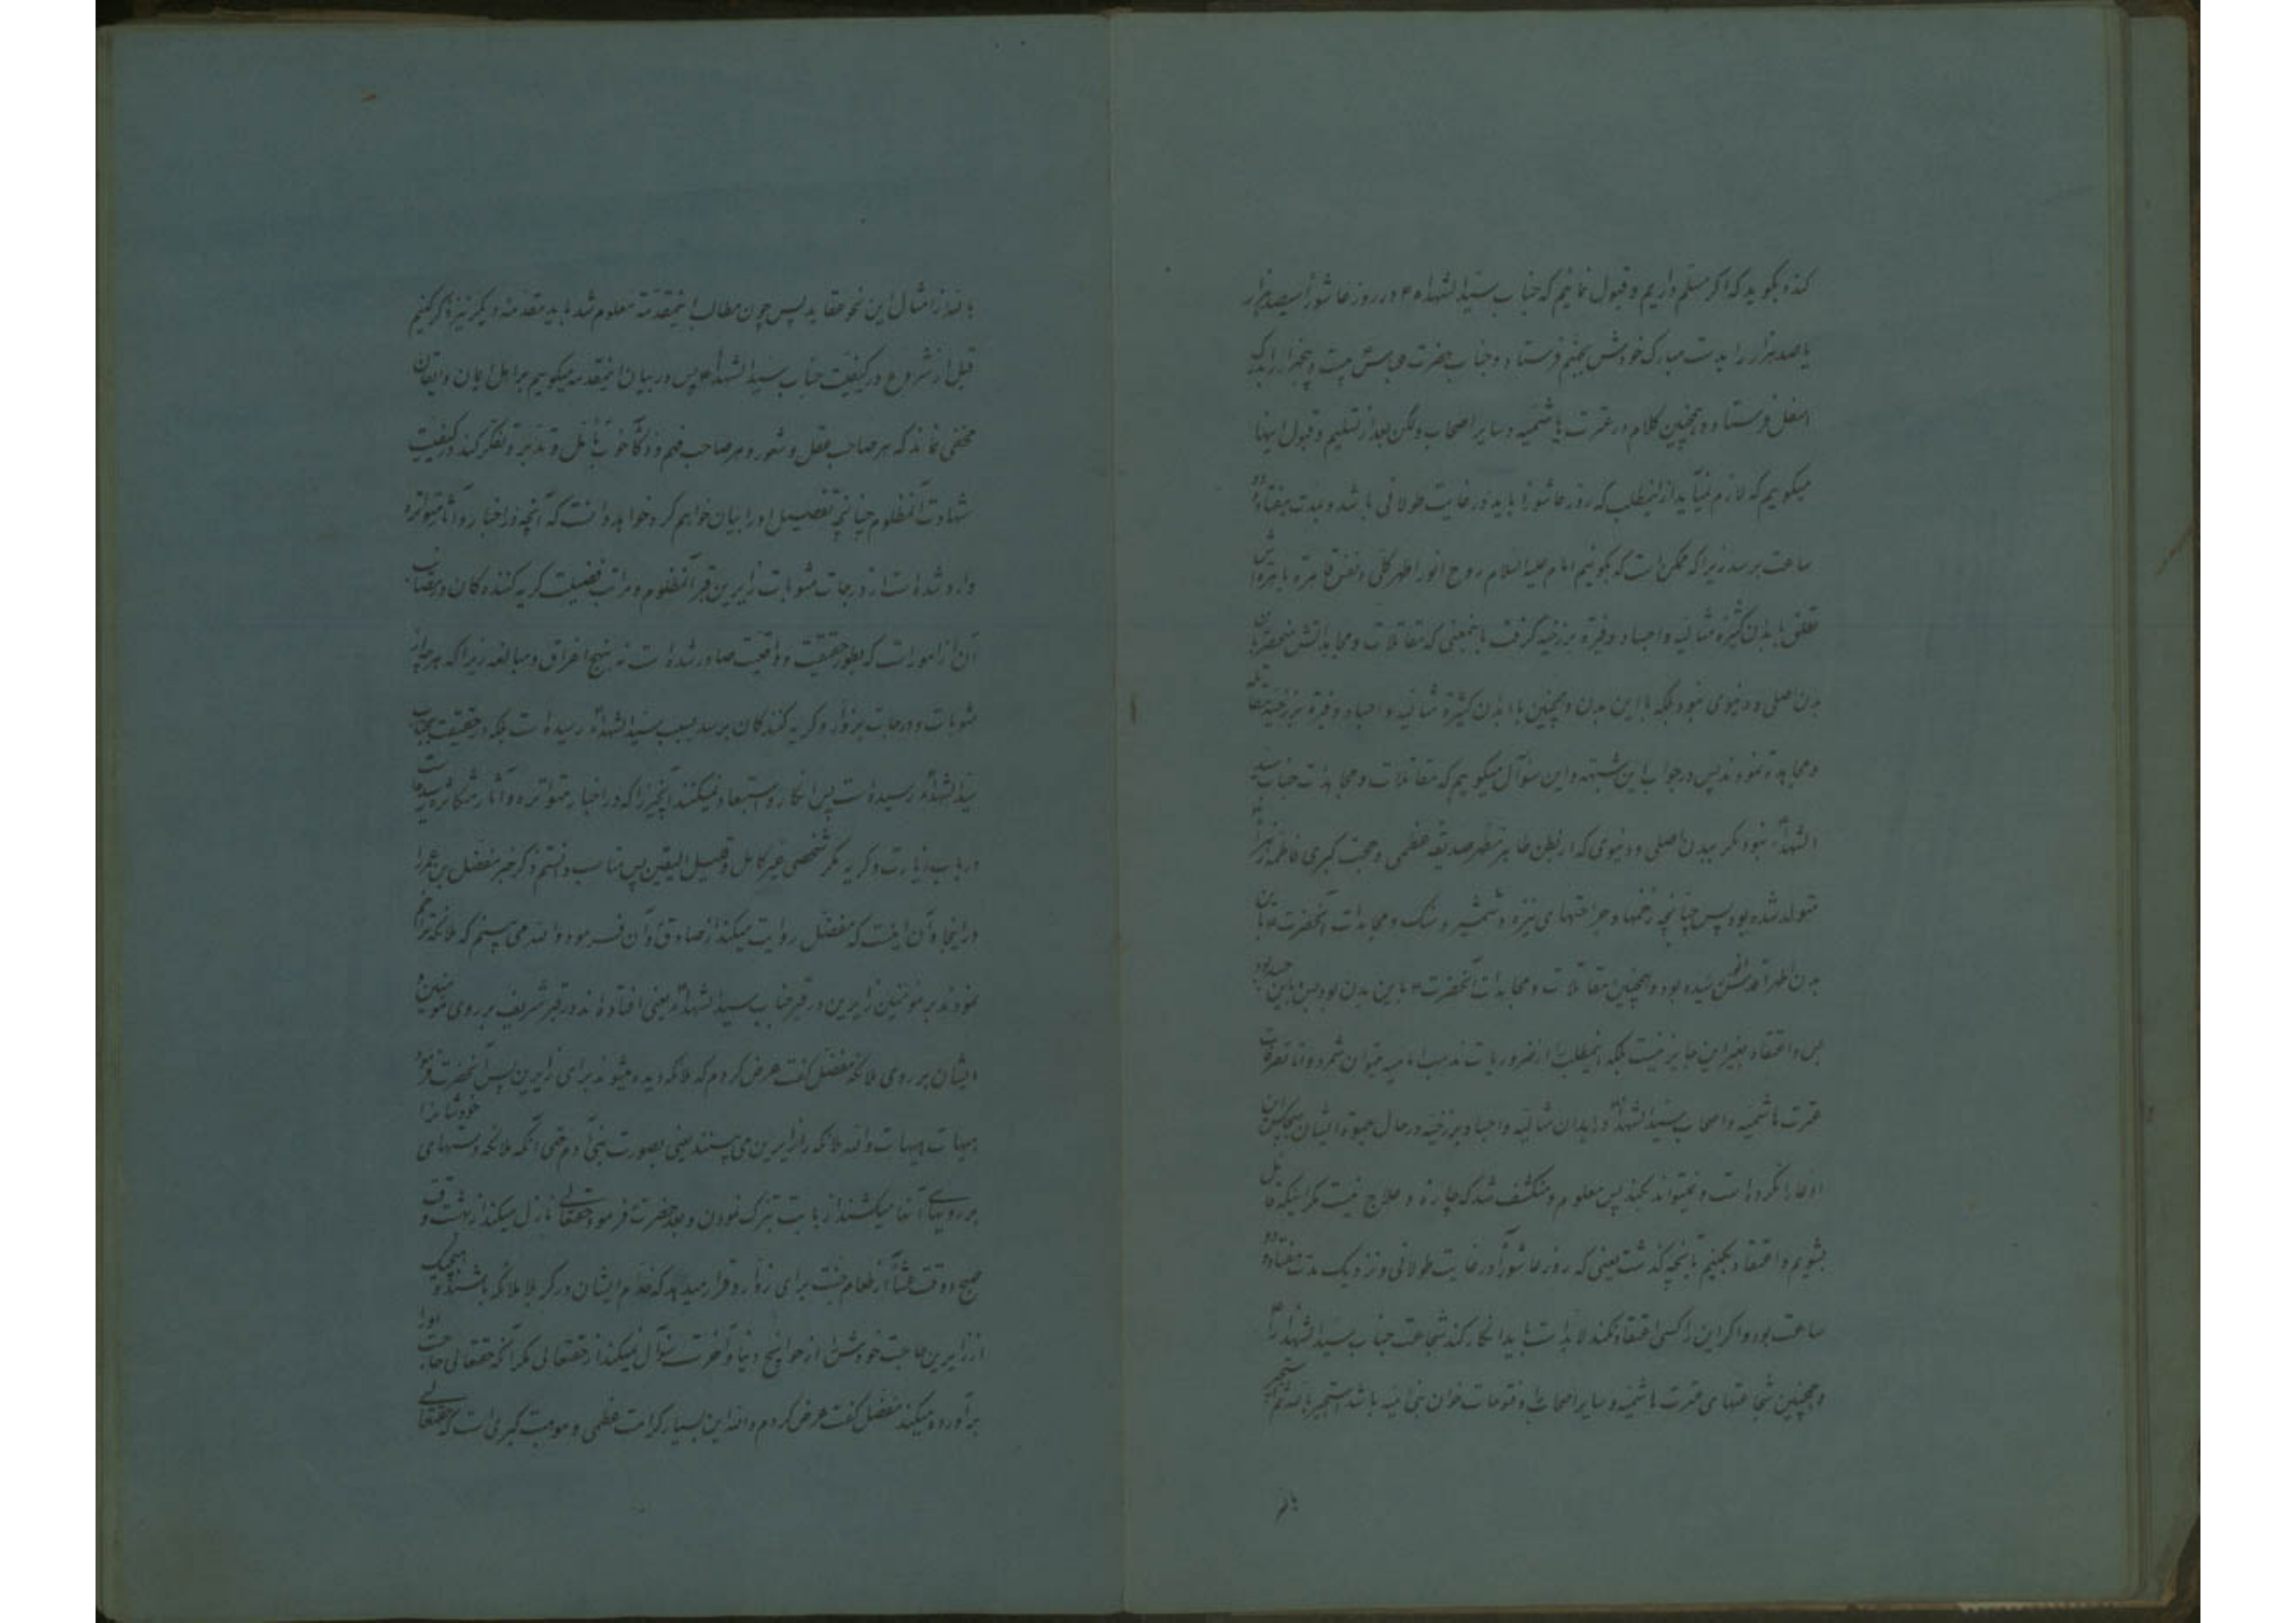 کند و بگوید که اگر مسلم داریم و قبول نمائیم که جناب سیدالشهداء ۴ در روز عاشورا سیصد هزار
یا صد هزار را بدست مبارک خودش بجهنم فرستاد و جناب حضرت عباسش بیست و پنجهزار را بدرک
اسفل فرستاد و همچنین کلام در عترت هاشمیه و سایر اصحاب ولکن بعد از تسلیم و قبول اینها
میگوییم که لازم نمیآید از اینمطلب که روز عاشورا باید در غایت طولانی باشد و بمدت هفتاد و دو
ساعت برسد زیرا که ممکن است که بگوئیم امام علیه السلام روح انور اطهر کلی و نفس قاهره باهره اش
تعلق بابدان کثیره مثالیه و اجساد وفیره برزخیه گرفت باینمعنی که مقاتلات و مجاهداتش منحصر بان
بدن اصلی و دنیوی نبود بلکه با این بدن و همچنین با ابدان کثیرة مثالیه و اجساد وفیره برزخیه مقاتله
و مجاهدة نمودند پس در جواب این شبهه و این سؤال میگوییم که مقاتلات و مجاهدات جناب سید
الشهداء نبود مگر ببدن اصلی و دنیوی که از بطن طاهر مطهر صدیقه عظمی و حجت کبری فاطمه زهرا
متولد شده بود پس چنانچه زخمها و جراحتهای نیزه و شمشیر و سنک و مجاهدات آنحضرت ۴ باین
بدن اطهر اقدسش رسیده بود و همچنین مقاتلات و مجاهدات آنحضرت ۴ باین بدن بود پس باین جسد بود
پس و اعتقاد بغیر این جایز نیست بلکه اینمطلب را از ضروریات مذهب امامیه میتوان شمرد و اما تصرفات
عترت هاشمیه و اصحاب سیدالشهداء در ابدان مثالیه و اجساد برزخیه در حال حیوة ایشان هیچکس این
ادعا را نکرده است و نمیتواند بکند پس معلوم و منکشف شد که چاره و علاج نیست مگر اینکه قایل
بشویم و اعتقاد بکنیم بآنچه گذشت یعنی که روز عاشورا در غایت طولانی و نزدیک بمدت هفتاد و دو
ساعت بود و اگر این را کسی اعتقاد نکند لابد است باید انکار کند شجاعت جناب سیدالشهداء را
و همچنین شجاعتهای عترت هاشمیه و سایر اصحاب و فتوحات خوان بنی امیه باشد نستجیر بالله ثم نستجیر
بالله
بالله از امثال این نحو عقاید پس چون مطالب اینمقدمة معلوم شد باید مقدمة دیگر نیز ذکر کنیم
قبل از شروع در کیفیت جناب سیدالشهداء پس در بیان اینمقدمه میگوییم بر اهل ایمان و ایقان
مخفی نماند که هر صاحب عقل و شعور و هر صاحب فهم و ذکا خوب تأمل و تدبر و تفکر کند در کیفیت
شهادت آنمظلوم چنانچه تفصیل او را بیان خواهم کرد خواهد دانست که آنچه در اخبار و آثار متواتره
وارد شده است از درجات مثوبات زایرین قبر آنمظلوم و مراتب فضیلت گریه کننده کان در مصائب
آن از امورات که بطور حقیقت و واقعیت صادر شده است نه بنهج اغراق و مبالغه زیرا که هر چه از
مثوبات و درجات بزوار و گریه کنندکان برسد بسبب سیدالشهداء رسیده است بلکه در حقیقت بجناب
سیدالشهداء رسیده است پس انکار و استبعاد نمیکند آنچیز را که در اخبار متواتره و آثار متکاثره رسیده است
در باب زیارت و گریه مگر شخصی غیر کامل و قلیل الیقین پس مناسب دانستم ذکر خبر مفضل بن عمر را
در اینجا و آن اینست که مفضل روایت میکند از صادق و آن فرمود والله می بینم که ملائکه تزاحم
نمودند بر مؤمنین زایرین در قبر جناب سیدالشهداء یعنی افتاده اند در قبر شریف بر روی مؤمنین و
ایشان بر روی ملائکه مفضل گفت عرض کردم که ملائکه دیده میشوند برای زایرین پس آنحضرت فرمود
هیهات هیهات والله ملائکه را زایرین می بینند یعنی بصورت بنی آدم حتی آنکه ملائکه دستهای خودشانرا
بر رویهای آنها میکشند از بابت تبرک نمودن و بعد حضرت فرمود حقتعالی نازل میکند از بهشت وقت
صبح و وقت عشا از طعام جنت برای زوار و قرار میدهد که خدام ایشان در کربلا ملائکه باشند و هیچیک
از زایرین حاجت خودش از حوایج دنیا و آخرت سؤال نمیکند از حقتعالی مگر آنکه حقتعالی حاجت اورا
برآورده میکند مفضل گفت عرض کردم والله این بسیار کرامت عظمی و موهبت کبری است که حقتعالی